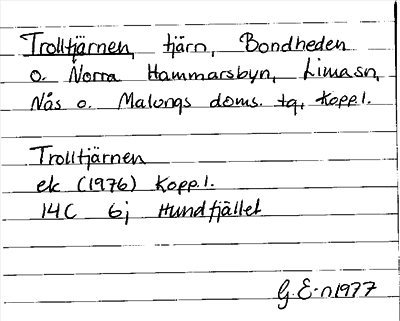 Trolltjärnen, tjärn, Bondheden
o. Norra Hammarsbyn, Limasn,
Nås o. Malungs doms. tg, Koppl.
Trolltjärnen
ek (1976) Koppl.
14C 6j Hundfjället
G.E-n 1977